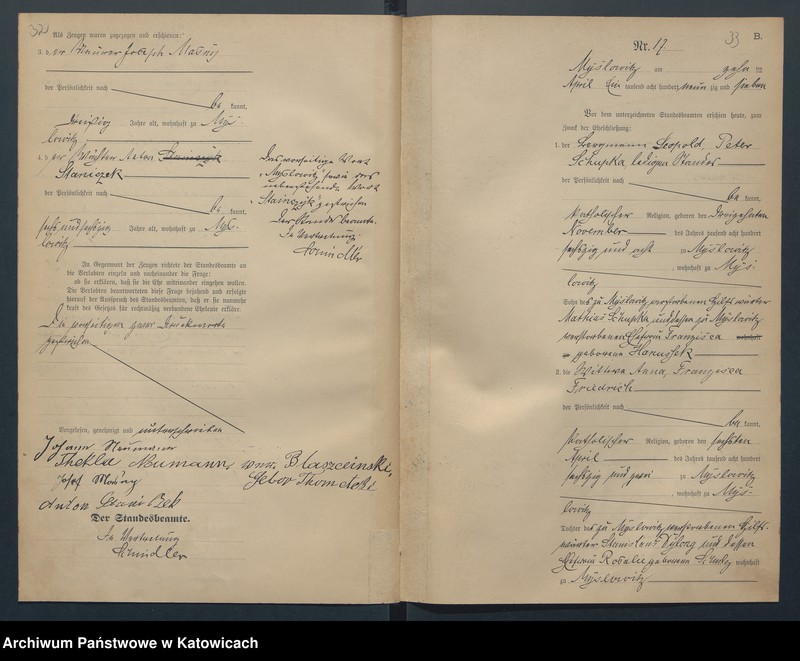 32
Als Zeugen waren zugezogen und erschienen:
3. der Maurer Joseph Masny
der Persönlichkeit nach
be kannt,
dreißig Jahre alt, wohnhaft zu Mys-
lowitz
4. der Wächter Anton
Staniczek
der Persönlichkeit nach
be kannt,
sechs und sechzig Jahre alt, wohnhaft zu Mys-
lowitz
Das vorseitige Wort
"Myslowitz" sowie das
nebenstehende Wort
gestrichen
Der Standesbeamte.
In Vertretung
In Gegenwart der Zeugen richtete der Standesbeamte an
die Verlobten einzeln und nacheinander die Frage:
ob sie erklären, daß sie die Ehe miteinander eingehen wollen.
Die Verlobten beantworteten diese Frage bejahend und erfolgte
hierauf der Ausspruch des Standesbeamten, daß er sie nunmehr
kraft des Gesetzes für rechtmäßig verbundene Eheleute erkläre.
Die vorseitigen zwei Druckworte
gestrichen
Vorgelesen, genehmigt und unterschrieben
Johann Neumann
Thekla Neumann, verw. Blaszcinski,
Josef Masny
Anton
Der Standesbeamte.
In Vertretung
33
B.
Nr. 17
Myslowitz am zehn ten
April Ein tausend acht hundert neun zig und sieben
Vor dem unterzeichneten Standesbeamten erschien heute, zum
Zweck der Eheschließung:
1. der Bergmann Leopold, Peter
Schupka ledigen Standes
der Persönlichkeit nach
be kannt,
katholischer Religion, geboren den dreizehnten
November des Jahres tausend acht hundert
sechszig und acht zu Myslowitz
, wohnhaft zu Mys-
lowitz
Sohn des zu Myslowitz verstorbenen Hilfswärter
Mathias Schupka und dessen zu Myslowitz
verstorbenen Ehefrau Franzisca wohnhaft
geborene Hanussek
2. die Wittwe Anna, Franzisca
Friedrich
der Persönlichkeit nach
be kannt,
katholischer Religion, geboren den sechsten
April des Jahres tausend acht hundert
sechszig und zwei zu Myslowitz
, wohnhaft zu Mys-
lowitz
Tochter des zu Myslowitz verstorbenen Hilfs-
wärter Stanislaus und dessen
Ehefrau Rosalie geborene wohnhaft
zu Myslowitz
Archiwum Państwowe w Katowicach